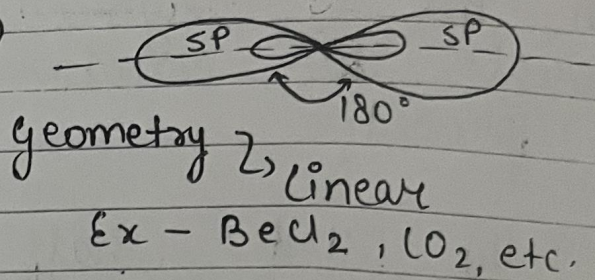 SP SP
180°
Geometry ↳ Linear
Ex - BeCl2, CO2, etc.